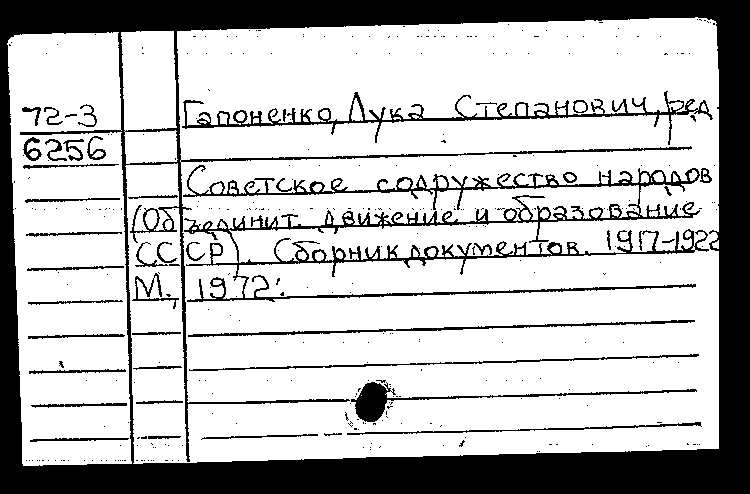 72-3 Гапоненко, Лука Степанович, ред.
6256
Советское содружество народов
(Объединит. движение и образование
СССР). Сборник документов. 1917-1922
М., 1972.